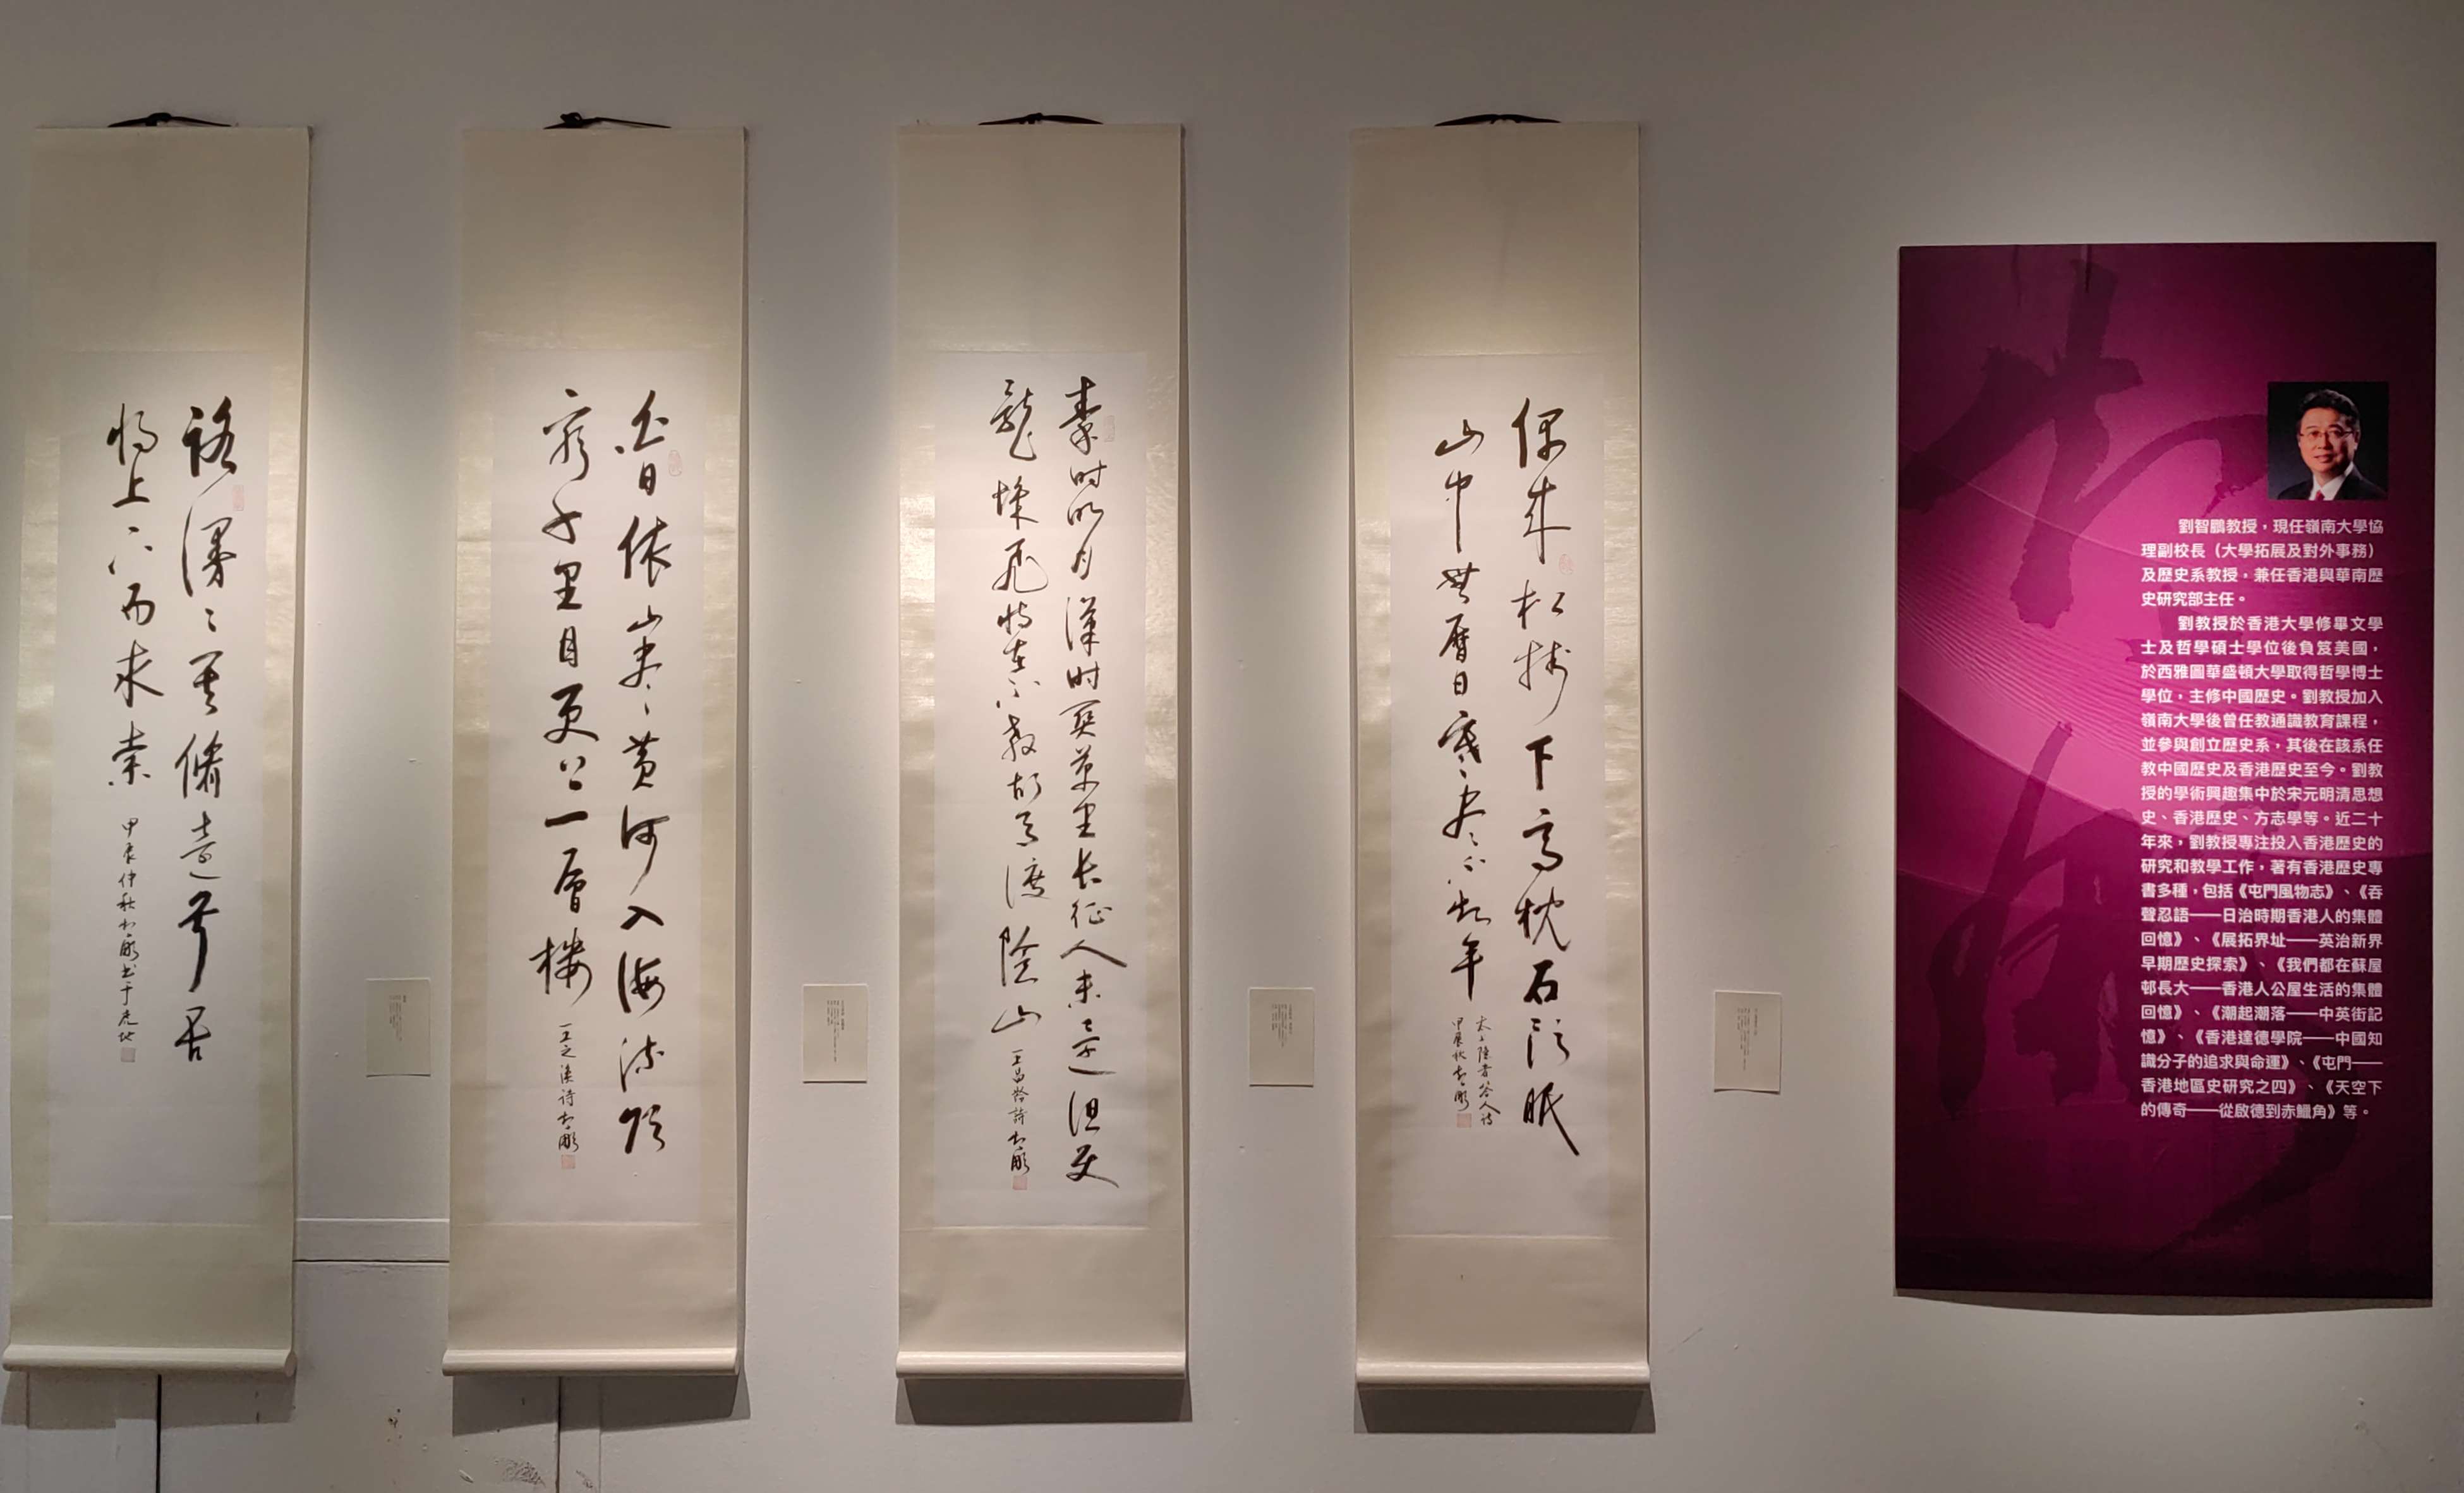 路漫〻其脩遠兮吾
將上下而求索
甲辰仲秋智鵬書于虎地
白日依山盡黃河入海流欲
窮千里目更上一層樓
王之渙詩智鵬
秦時明月漢時關萬里長征人未還但使
龍城飛將在不教胡馬渡陰山
王昌齡詩智鵬
偶來松樹下高枕石頭眠
山中無曆日寒盡不知年
太上隱者答人詩
甲辰秋智鵬
劉智鵬教授，現任嶺南大學協
理副校長（大學拓展及對外事務）
及歷史系教授，兼任香港與華南歷
史研究部主任。
劉教授於香港大學修畢文學
士及哲學碩士學位後負笈美國，
於西雅圖華盛頓大學取得哲學博士
學位，主修中國歷史。劉教授加入
嶺南大學後曾任教通識教育課程，
並參與創立歷史系，其後在該系任
教中國歷史及香港歷史至今。劉教
授的學術興趣集中於宋元明清思想
史、香港歷史、方志學等。近二十
年來，劉教授專注投入香港歷史的
研究和教學工作，著有香港歷史專
書多種，包括《屯門風物志》、《吞
聲忍語——日治時期香港人的集體
回憶》、《展拓界址——英治新界
早期歷史探索》、《我們都在蘇屋
邨長大——香港人公屋生活的集體
回憶》、《潮起潮落——中英街記
憶》、《香港達德學院——中國知
識分子的追求與命運》、《屯門——
香港地區史研究之四》、《天空下
的傳奇——從啟德到赤鱲角》等。